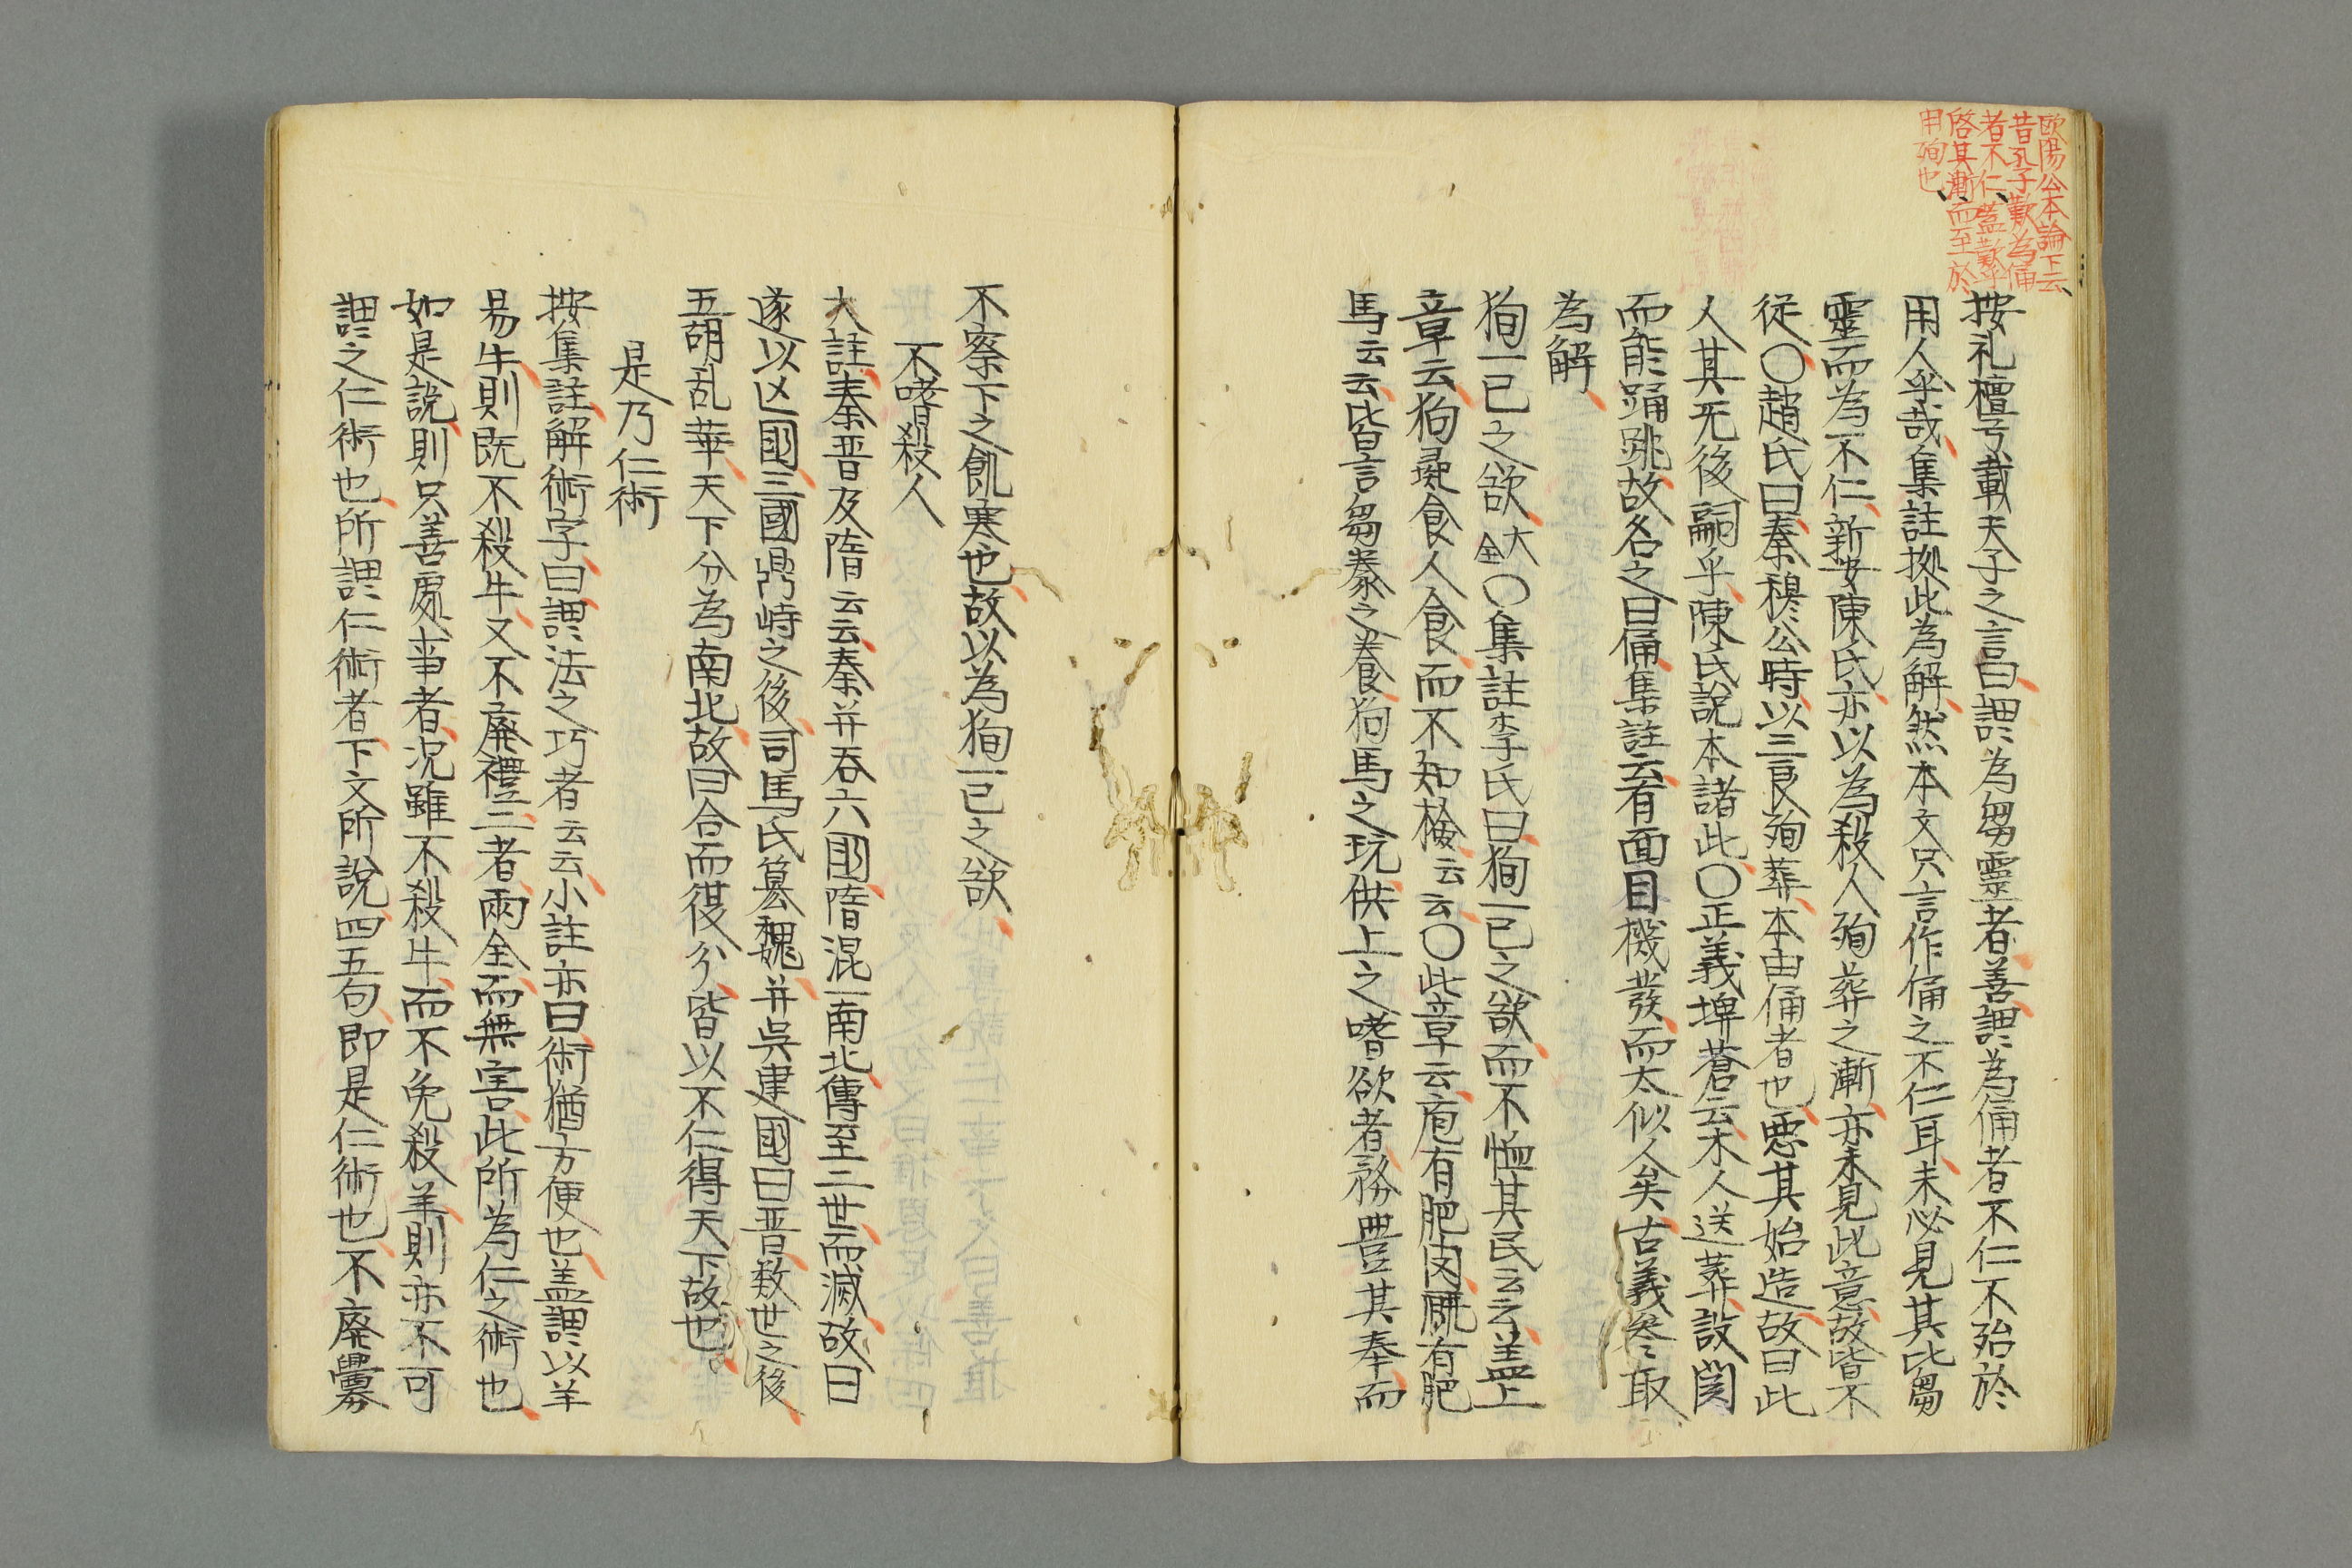 歐陽公本論下云
昔孔子歎為俑
者不仁蓋歎乎
啓其漸而至於
用殉也
按礼檀弓載夫子之言曰謂為芻靈者善謂為俑者不仁不殆於
用人乎哉集註拠此為解然本文只言作俑之不仁耳未必見其比芻
霊而為不仁新安陳氏亦以為殺人殉葬之漸亦未見此意故皆不
従〇趙氏曰秦穆公時以三良殉葬本由俑者也悪其始造故曰此
人其无後嗣乎陳氏説本諸此〇正義埤蒼云木人送葬設関
而能踊跳故名之曰俑集註云有面目機発而太似人矣古義参取
為解
狥一己之欲大全〇集註李氏曰狥一己之欲而不恤其民云云盖上
章云狗彘食人食而不知檢云云〇此章云庖有肥肉厩有肥
馬云云皆言芻豢之養狗馬之玩供上之嗜欲者務豊其奉而
不察下之飢寒也故以為狥一己之欲
不嗜殺人
大註秦晋及隋云云秦并吞六國隋混一南北傳至二世而滅故曰
遂以亡國三國鼎峙之後司馬氏簒魏并呉建國曰晋数世之後
五胡乱華天下分為南北故曰合而復分皆以不仁得天下故也
是乃仁術
按集註解術字曰謂法之巧者云云小註亦曰術猶方便也盖謂以羊
易牛則既不殺牛又不廃禮二者両全而無害此所為仁之術也
如是説則只善處事者况雖不殺牛而不免殺羊則亦不可
謂之仁術也所謂仁術者下文所説四五句即是仁術也不廃釁